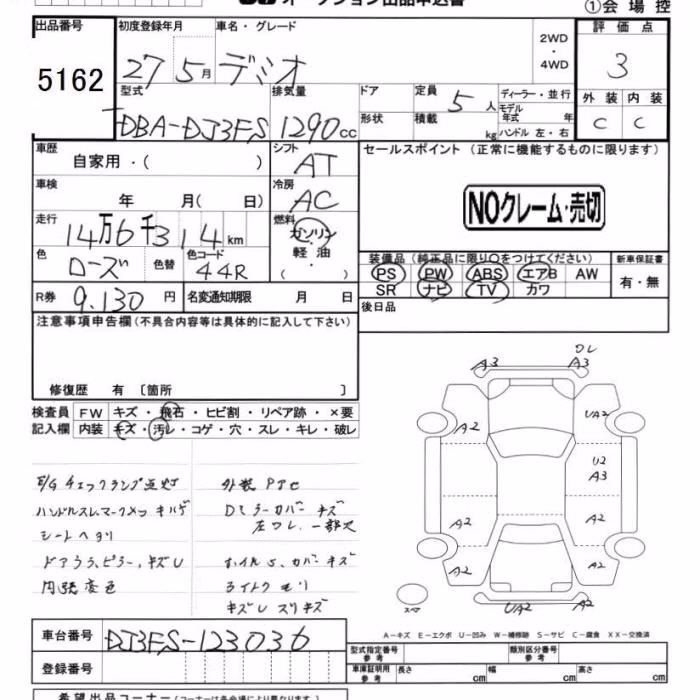 ①会場控
出品番号 初度登録年月 車名・グレード 2WD・4WD 評価点
5162 27 5月 デミオ 3
型式 排気量 ドア 定員 5人 ディーラー・並行 外装 内装
DBA-DJ3FS 1290cc 形状 積載 kg モデル年式 年 ハンドル 左・右 C C
車歴 自家用・( ) シフト AT セールスポイント(正常に機能するものに限ります)
車検 年 月( 日) 冷房 AC NOクレーム・売切
走行 14万6千314km 燃料 ガソリン・軽油・( )
色 ローズ 色替 色コード 44R 装備品(純正品に限り○をつけてください) 新車保証書
PS PW ABS エアB AW 有・無
SR ナビ TV カワ
R券 9.130円 名変通知期限 月 日 後日品
注意事項申告欄(不具合内容等は具体的に記入して下さい)
修復歴 有〔箇所 〕
検査員 FW キズ・飛石・ヒビ割・リペア跡・×要
記入欄 内装 キズ・汚レ・コゲ・穴・スレ・キレ・破レ
E/Gチェックランプ点灯 外装
ハンドルスレ、マークメッキハゲ Dミラーカバーキズ
シートヘタリ 左ワレ、一部欠
ドアウラ、ピラー、キズU ホイルS、カバーキズ
内張変色 ライトクモリ
キズU スリキズ
A3 A3
A2 UA2
U2
A3
A2 A2
A2 A2
UA2 A2
スペア
A-キズ E-エクボ U-凹み W-補修跡 S-サビ C-腐食 XX-交換済
車台番号 DJ3FS-123036 型式指定番号 参考 類別区分番号 参考
登録番号 車庫証明用 参考 長さ cm 幅 cm 高さ cm
希望出品コーナー(コーナーは各会場により異なります。)